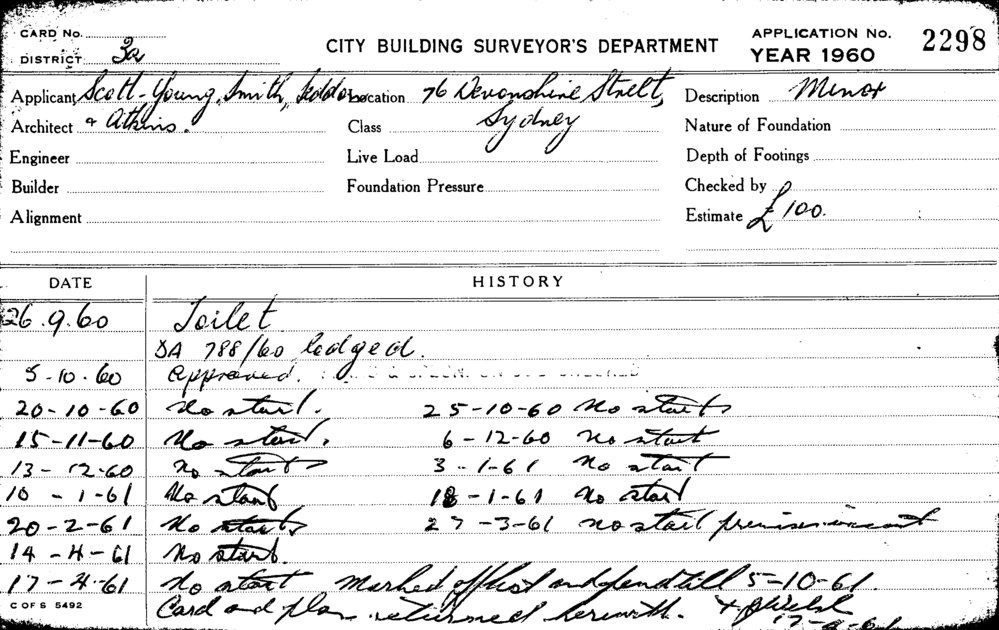 CARD No.
DISTRICT 3a
CITY BUILDING SURVEYOR'S DEPARTMENT
APPLICATION No. 2298
YEAR 1960
Applicant Scott-Young, Smith, Location 76 Devonshire Street, Description Minor
Architect & Atkins. Class Sydney Nature of Foundation
Engineer Live Load Depth of Footings
Builder Foundation Pressure Checked by
Alignment Estimate £100.
DATE HISTORY
26.9.60 Toilet
DA 788/60 lodged.
5-10-60 Approved.
20-10-60 No start. 25-10-60 No start
15-11-60 No start. 6-12-60 no start
13-12-60 no start 3-1-61 No start
10-1-61 No start 18-1-61 No start
20-2-61 No start 27-3-61 no start premises vacant
14-4-61 No start.
17-4-61 No start Marked off list and pend till 5-10-61.
C OF S 5492
Card and plan returned herewith.